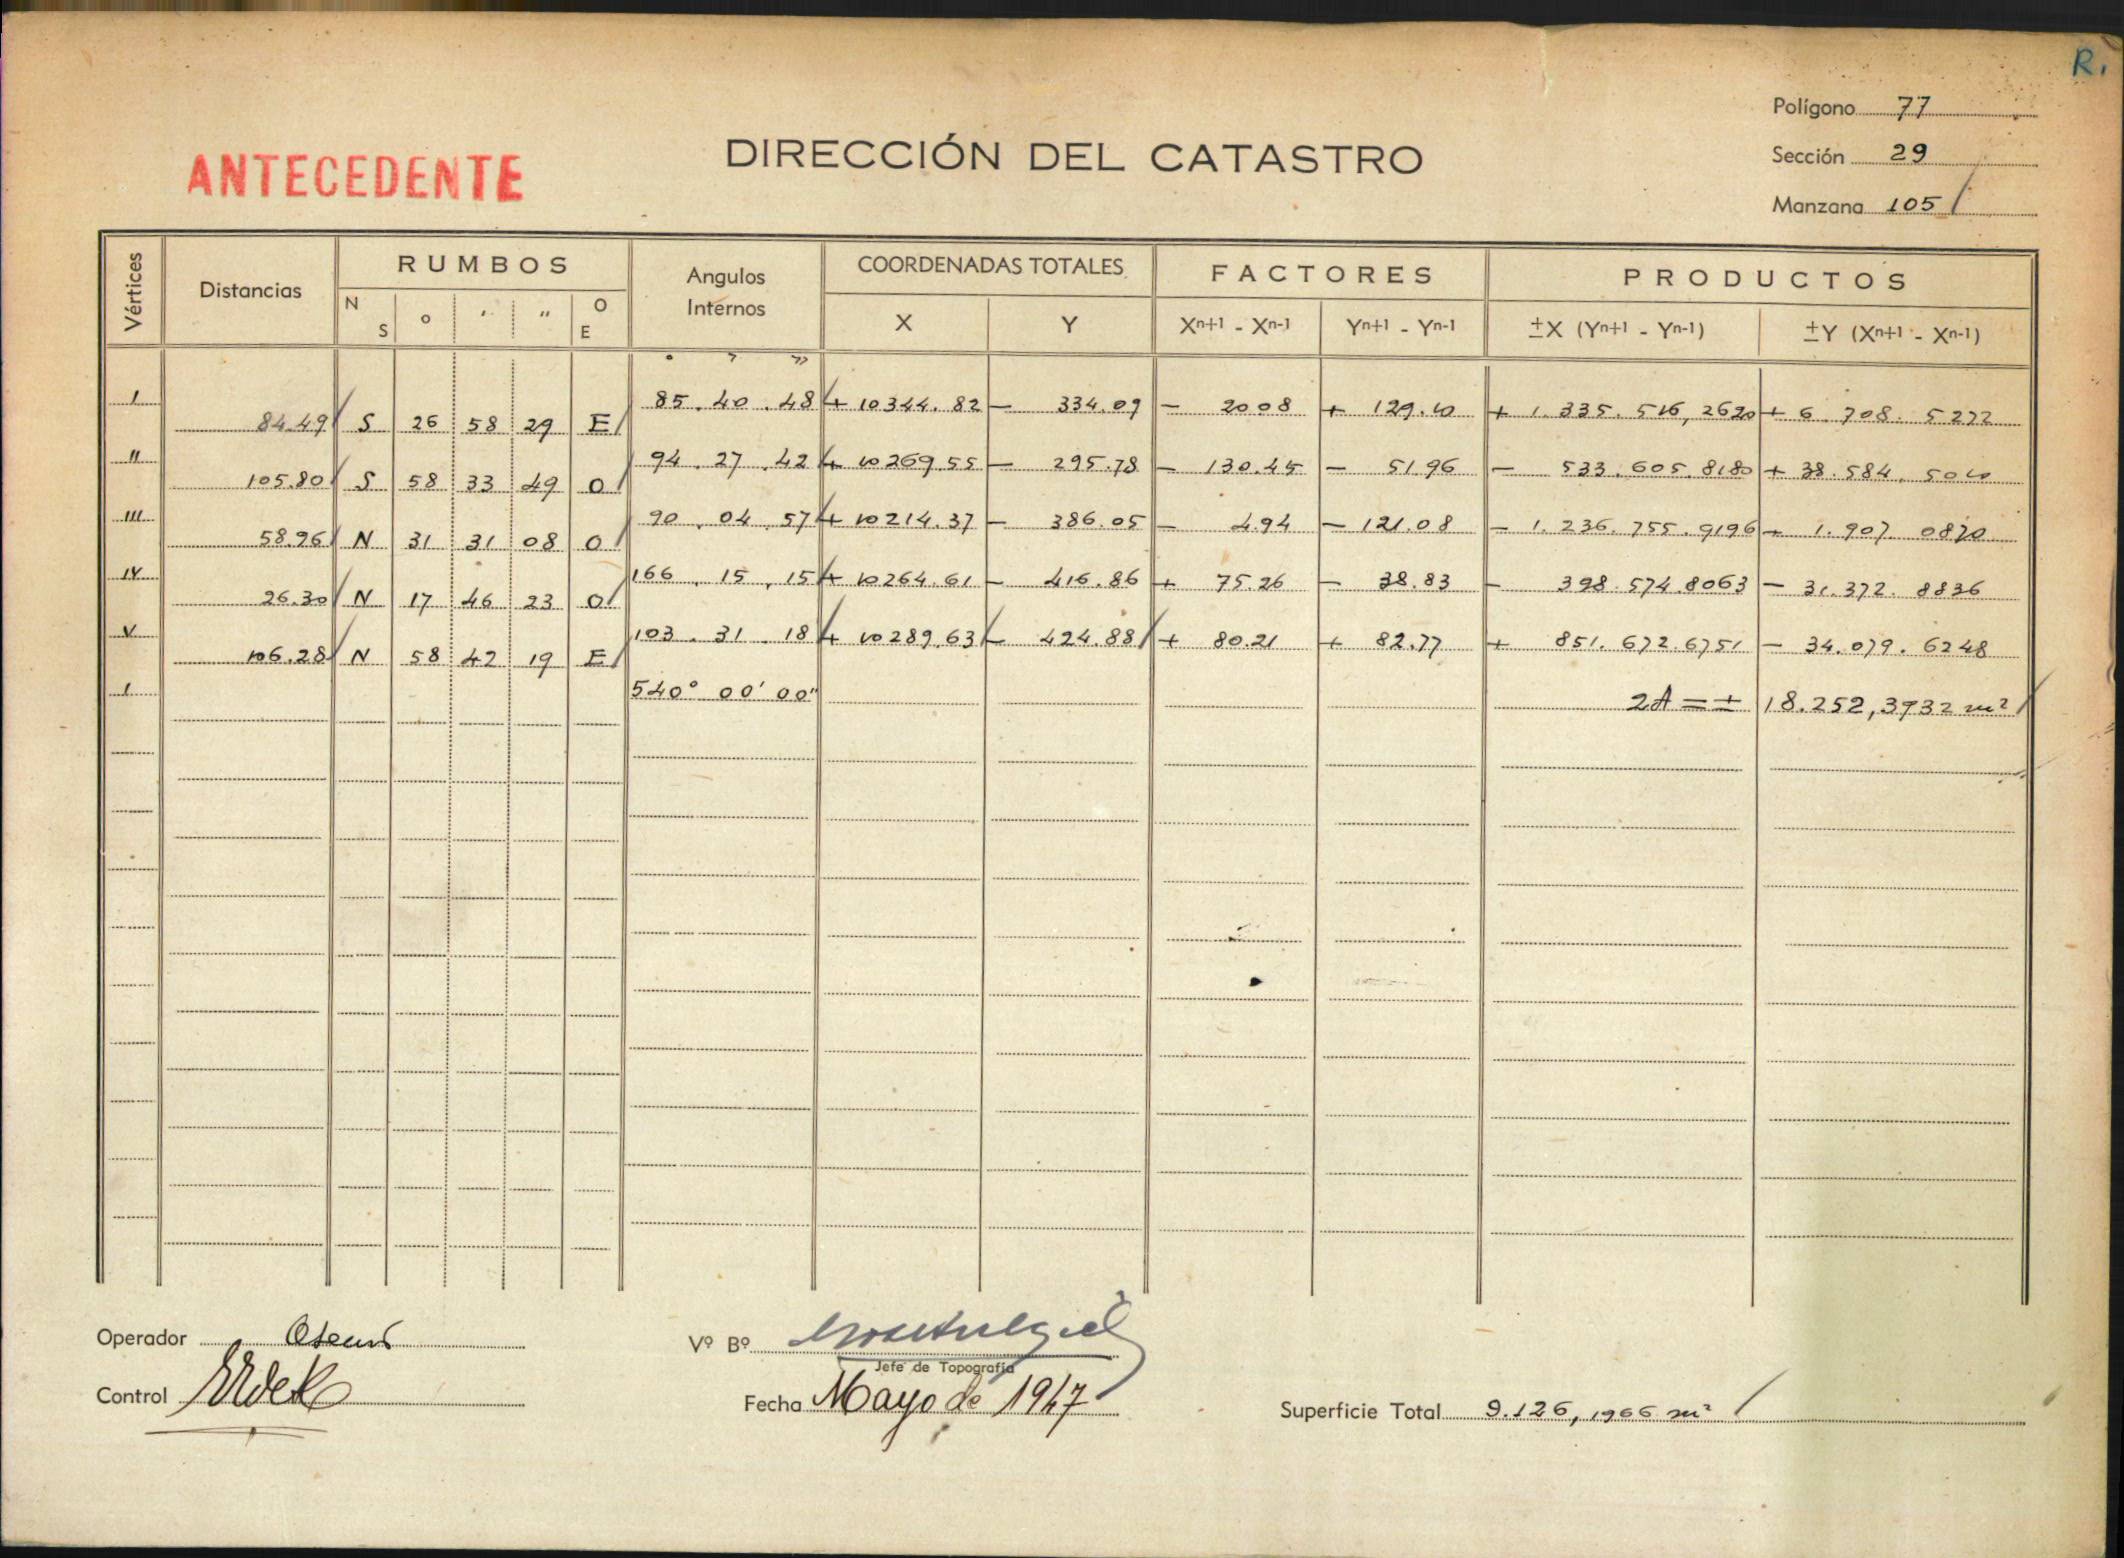 R.
Polígono 77
Sección 29
Manzana 105
ANTECEDENTE
DIRECCIÓN DEL CATASTRO
Vértices Distancias RUMBOS Angulos Internos COORDENADAS TOTALES FACTORES PRODUCTOS
N S o ' " O E X Y Xn+1 - Xn-1 Yn+1 - Yn-1 ±X (Yn+1 - Yn-1) ±Y (Xn+1 - Xn-1)
° ' "
I 85. 40. 48 + 10344.82 - 334.09 - 20 08 + 129.10 + 1.335.516,2620 + 6.708. 5272
84.49 S 26 58 29 E
II 94. 27. 42 + 10269.55 - 295.78 - 130.45 - 51.96 - 533.605.8180 + 38.584. 5010
105.80 S 58 33 49 O
III 90. 04. 57 + 10214.37 - 386.05 - 4.94 - 121.08 - 1.236.755.9196 - 1.907. 0870
58.96 N 31 31 08 O
IV 166. 15. 15 + 10264.61 - 416.86 + 75.26 - 38.83 - 398.574.8063 - 31.372. 8836
26.30 N 17 46 23 O
V 103. 31. 18 + 10289.63 - 424.88 + 80.21 + 82.77 + 851.672.6751 - 34.079. 6248
106.28 N 58 42 19 E
I 540° 00' 00" 2A = ± 18.252,3932 m²
Operador
Vº Bº
Jefe de Topografía
Control
Fecha Mayo de 1947
Superficie Total 9.126, 1966 m²